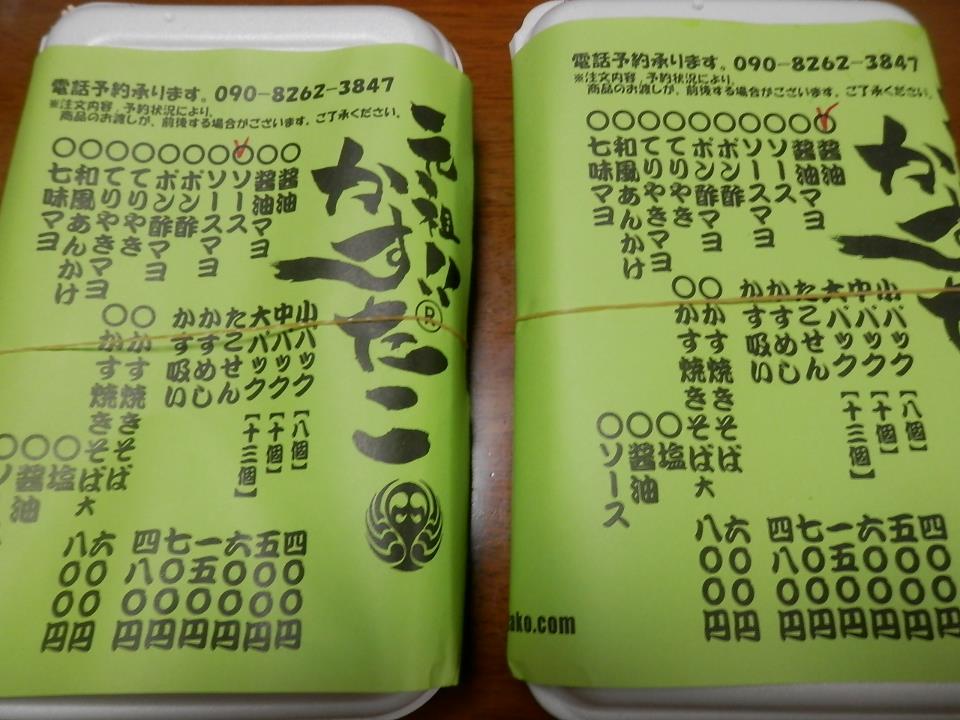 電話予約承ります。090-8262-3847
※注文内容、予約状況により、
商品のお渡しが、前後する場合がございます。ご了承ください。
元祖
かすたこ®
○醤油
○醤油マヨ
○ソース
○ソースマヨ
○ポン酢
○ポン酢マヨ
○てりやき
○てりやきマヨ
○和風あんかけ
○七味マヨ
小パック【八個】 四〇〇円
中パック【十個】 五〇〇円
大パック【十三個】 六〇〇円
たこせん 一五〇円
かすめし 七〇〇円
かす吸い 四八〇円
○かす焼きそば 六〇〇円
○かす焼きそば大 八〇〇円
○塩
○醤油
ソ
電話予約承ります。090-8262-3847
※注文内容、予約状況により、
商品のお渡しが、前後する場合がございます。ご了承ください。
かすた
○醤油
○醤油マヨ
○ソース
○ソースマヨ
○ポン酢
○ポン酢マヨ
○てりやき
○てりやきマヨ
○和風あんかけ
○七味マヨ
小パック【八個】 四〇〇円
中パック【十個】 五〇〇円
大パック【十三個】 六〇〇円
たこせん 一五〇円
かすめし 七〇〇円
かす吸い 四八〇円
○かす焼きそば 六〇〇円
○かす焼きそば大 八〇〇円
○塩
○醤油
○ソース
ako.com